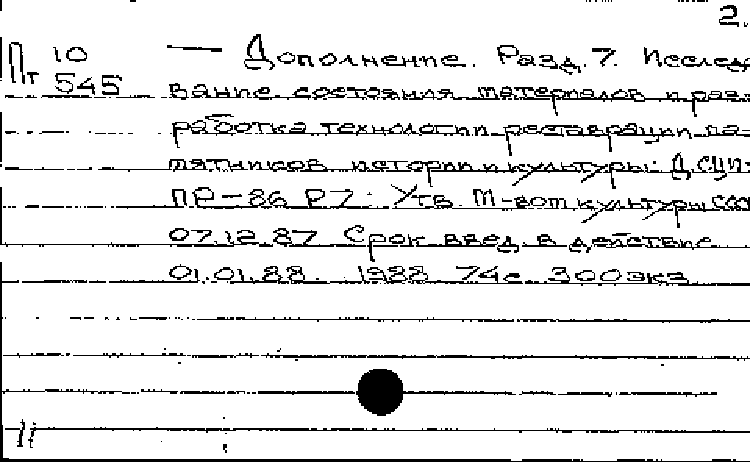 2.
Пт 10 — Дополнение. Разд. 7. Исследо
545 вание состояния материалов и раз
работка технологии реставрации па-
мятников истории и культуры: Д.СЦП
ПР-86 РZ: Утв. М-вом культуры СССР
07.12.87 Срок введ. в действие
01.01.88. 1988 74с 300экз